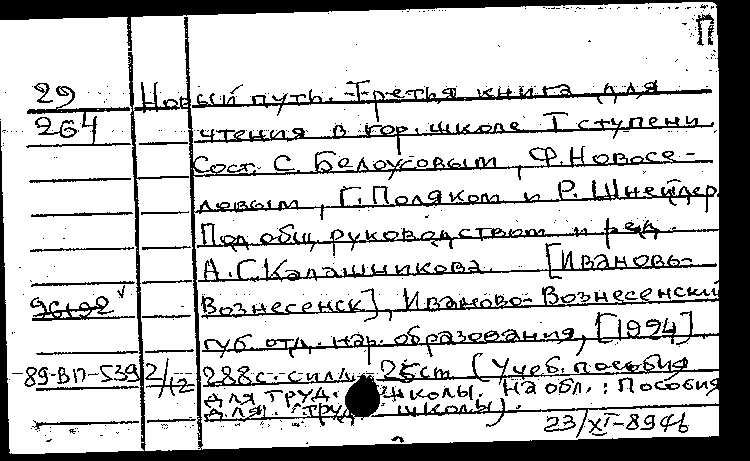 П
29
264
Новый путь. Третья книга для
чтения в гор. школе I ступени
Сост. С. Белоусовым, Ф. Новосе-
ловым, Г. Поляком и Р. Шнейдер.
Под общ. руководством и ред.
А. Г. Калашникова. [Иваново-
96192 Вознесенск], Иваново-Вознесенский
губ. отд. нар. образования, [1924].
89-ВП-539 2/12 288 с. с илл. 25 см. (Учеб. пособия
для труд. школы. На обл.: Пособия
для труд. школы).
23/XI-89